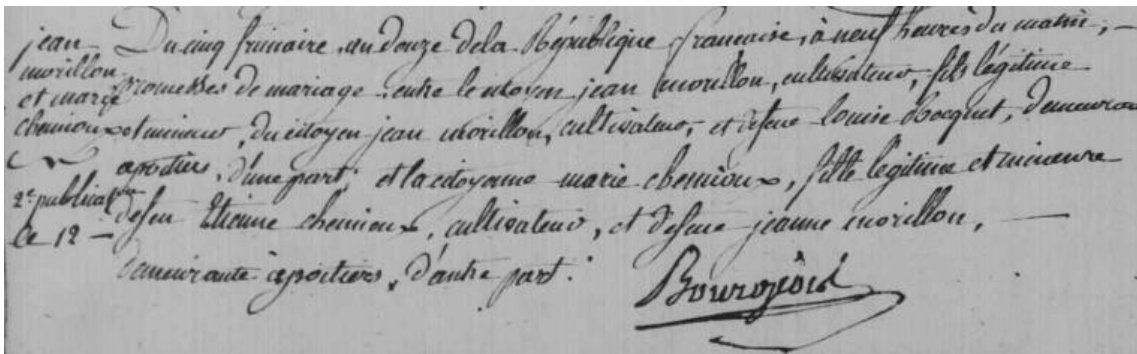 jean
morillon
et marie
chemioux
2e publication
le 12 —
Du cinq frimaire, an douze dela République française, à neuf heures du matin, —
promesses de mariage, entre le citoyen jean morillon, cultivateur, fils légitime
et mineur, du citoyen jean morillon, cultivateur, et defeue louise Bocquet, demeurant
apoitiers, d'une part; et la citoyenne marie chemioux, fille légitime et mineure
defeu Etienne chemioux, cultivateur, et defeue jeanne morillon, —
demeurante apoitiers, d'autre part.
Bourgeois